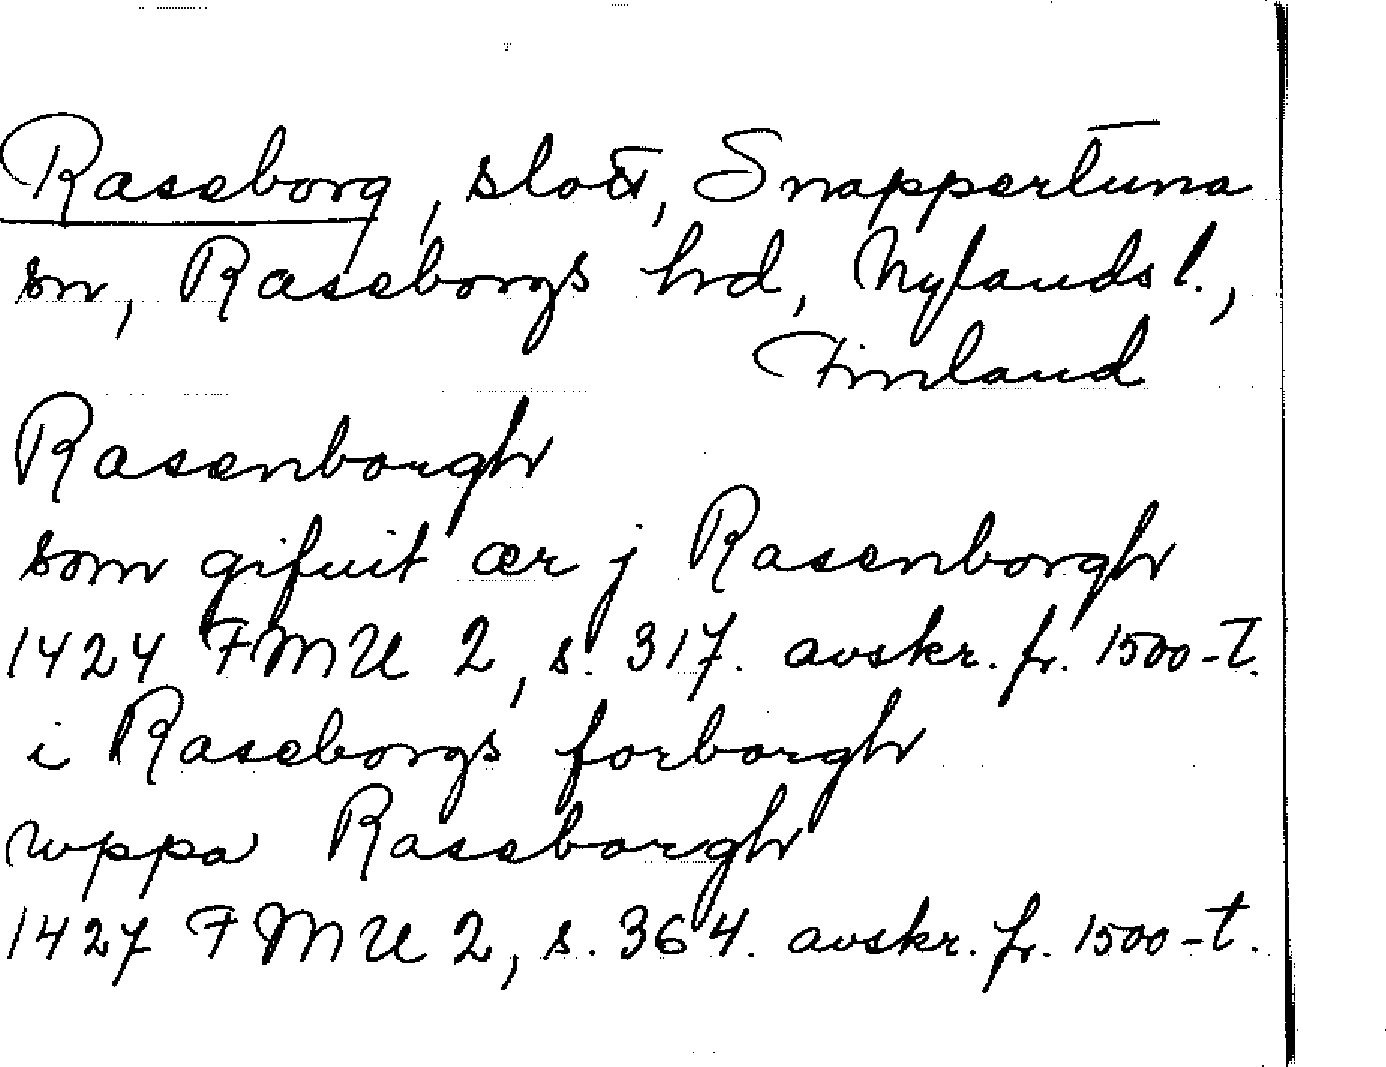 Raseborg, slott, Snappertuna
sn, Raseborgs hrd, Nylands l.,
Finland
Rasenborgh
som gifuit ær j Rasenborgh
1424 FMU 2, s. 317. avskr. fr. 1500-t.
i Raseborgs forborgh
wppa Raseborgh
1427 FMU 2, s. 364. avskr. fr. 1500-t.